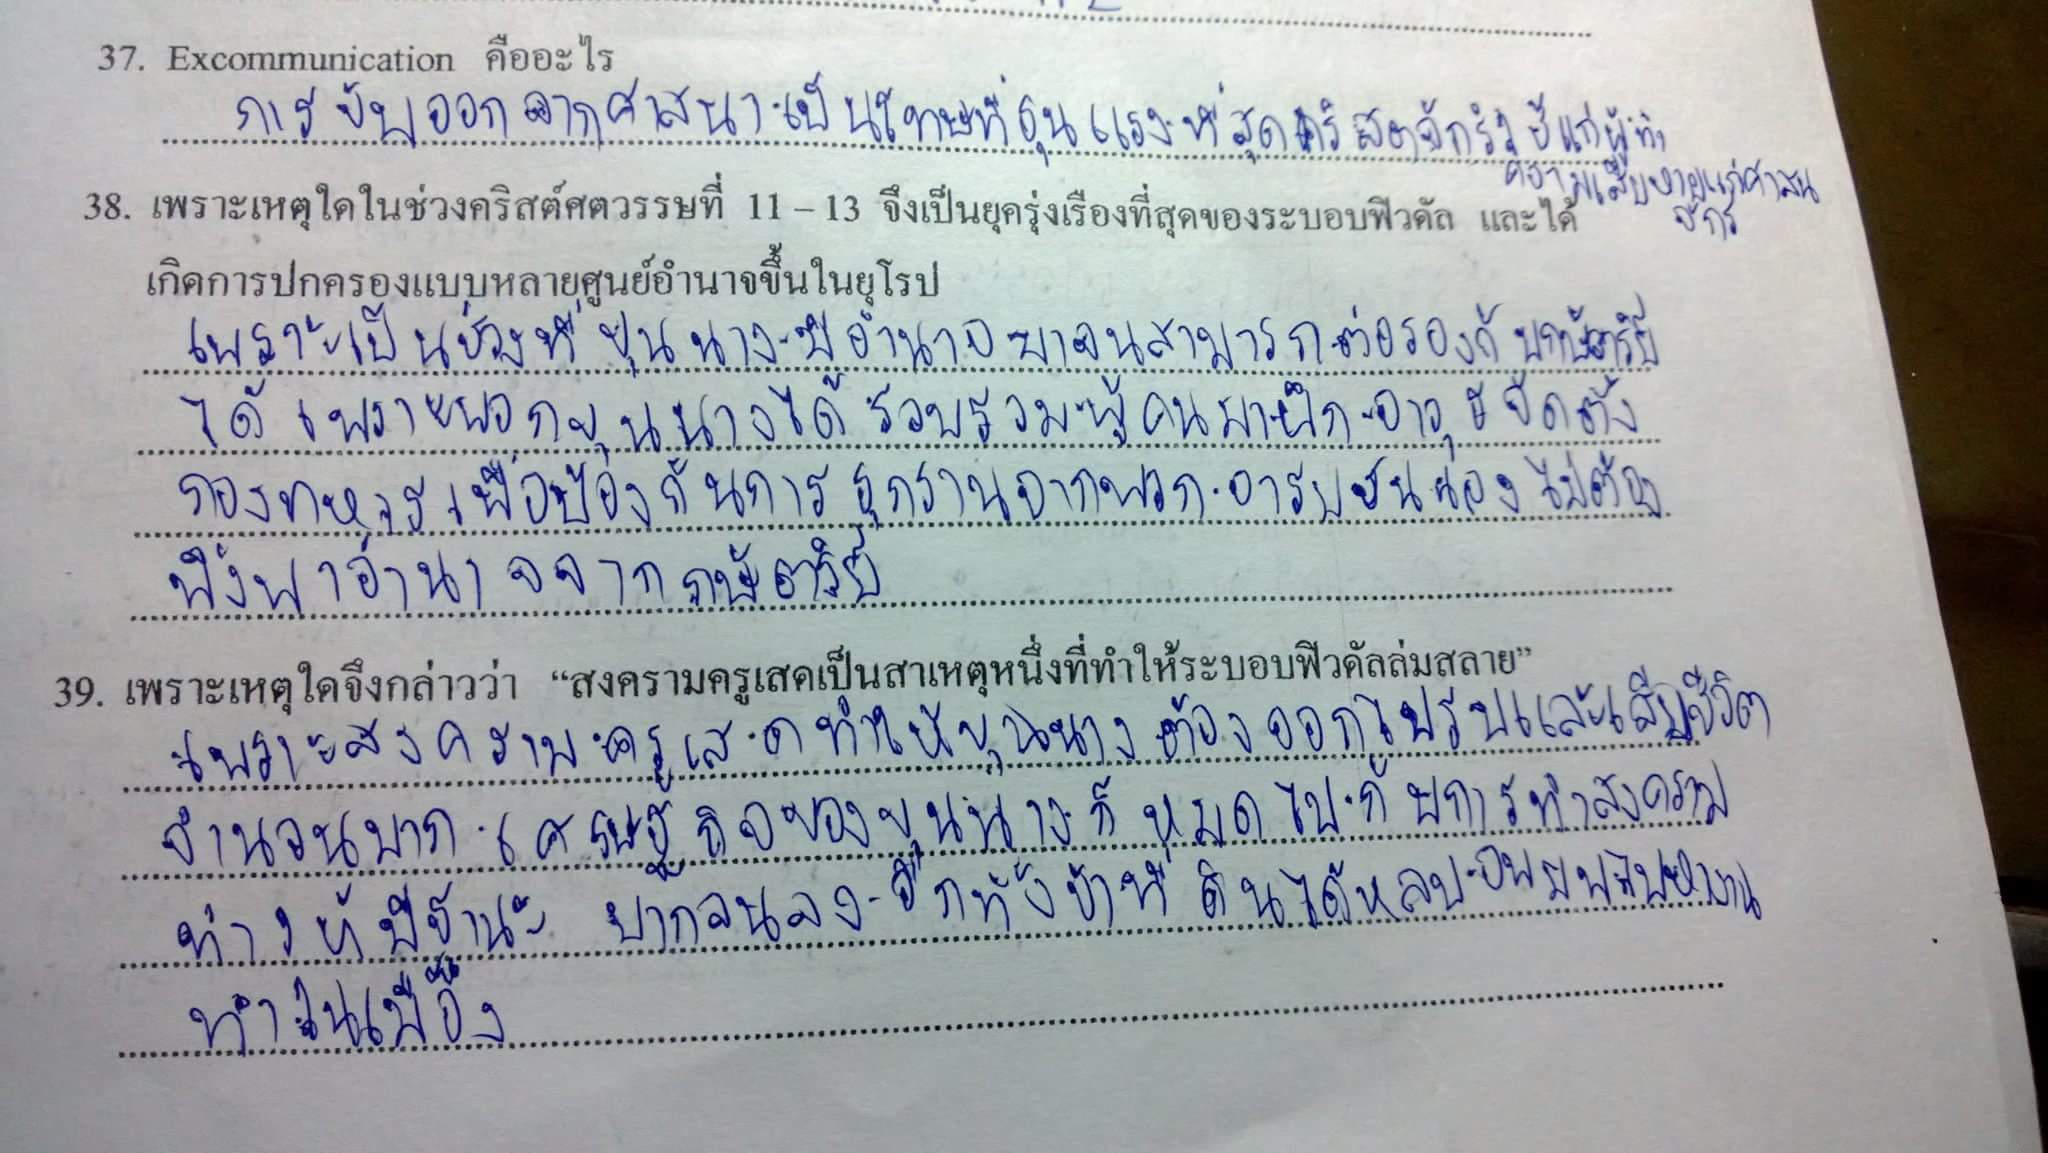 37. Excommunication คืออะไร
การขับออกจากศาสนา เป็นโทษที่รุนแรงที่สุดคริสตจักรใช้แก่ผู้ทำ
ความเสียหายแก่ศาสน
จักร
38. เพราะเหตุใดในช่วงคริสต์ศตวรรษที่ 11 – 13 จึงเป็นยุครุ่งเรืองที่สุดของระบอบฟิวดัล และได้
เกิดการปกครองแบบหลายศูนย์อำนาจขึ้นในยุโรป
เพราะเป็นช่วงที่ขุนนางมีอำนาจมากจนสามารถต่อรองกับกษัตริย์
ได้ เพราะพวกขุนนางได้รวบรวมผู้คนมาฝึกอาวุธจัดตั้ง
กองทหารเพื่อป้องกันการรุกรานจากพวกอารยชนเอง ไม่ต้อง
พึ่งพาอำนาจจากกษัตริย์
39. เพราะเหตุใดจึงกล่าวว่า “สงครามครูเสดเป็นสาเหตุหนึ่งที่ทำให้ระบอบฟิวดัลล่มสลาย”
เพราะสงครามครูเสดทำให้ขุนนางต้องออกไปรบและเสียชีวิต
จำนวนมาก เศรษฐกิจของขุนนางก็หมดไปกับการทำสงคราม
ทำให้มีฐานะยากจนลง อีกทั้งข้าที่ดินได้หลบอพยพไปหางาน
ทำในเมือง